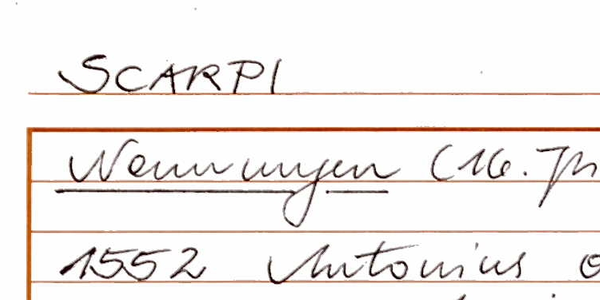 SCARPI
Nennungen (16. Jh
1552 Antonius